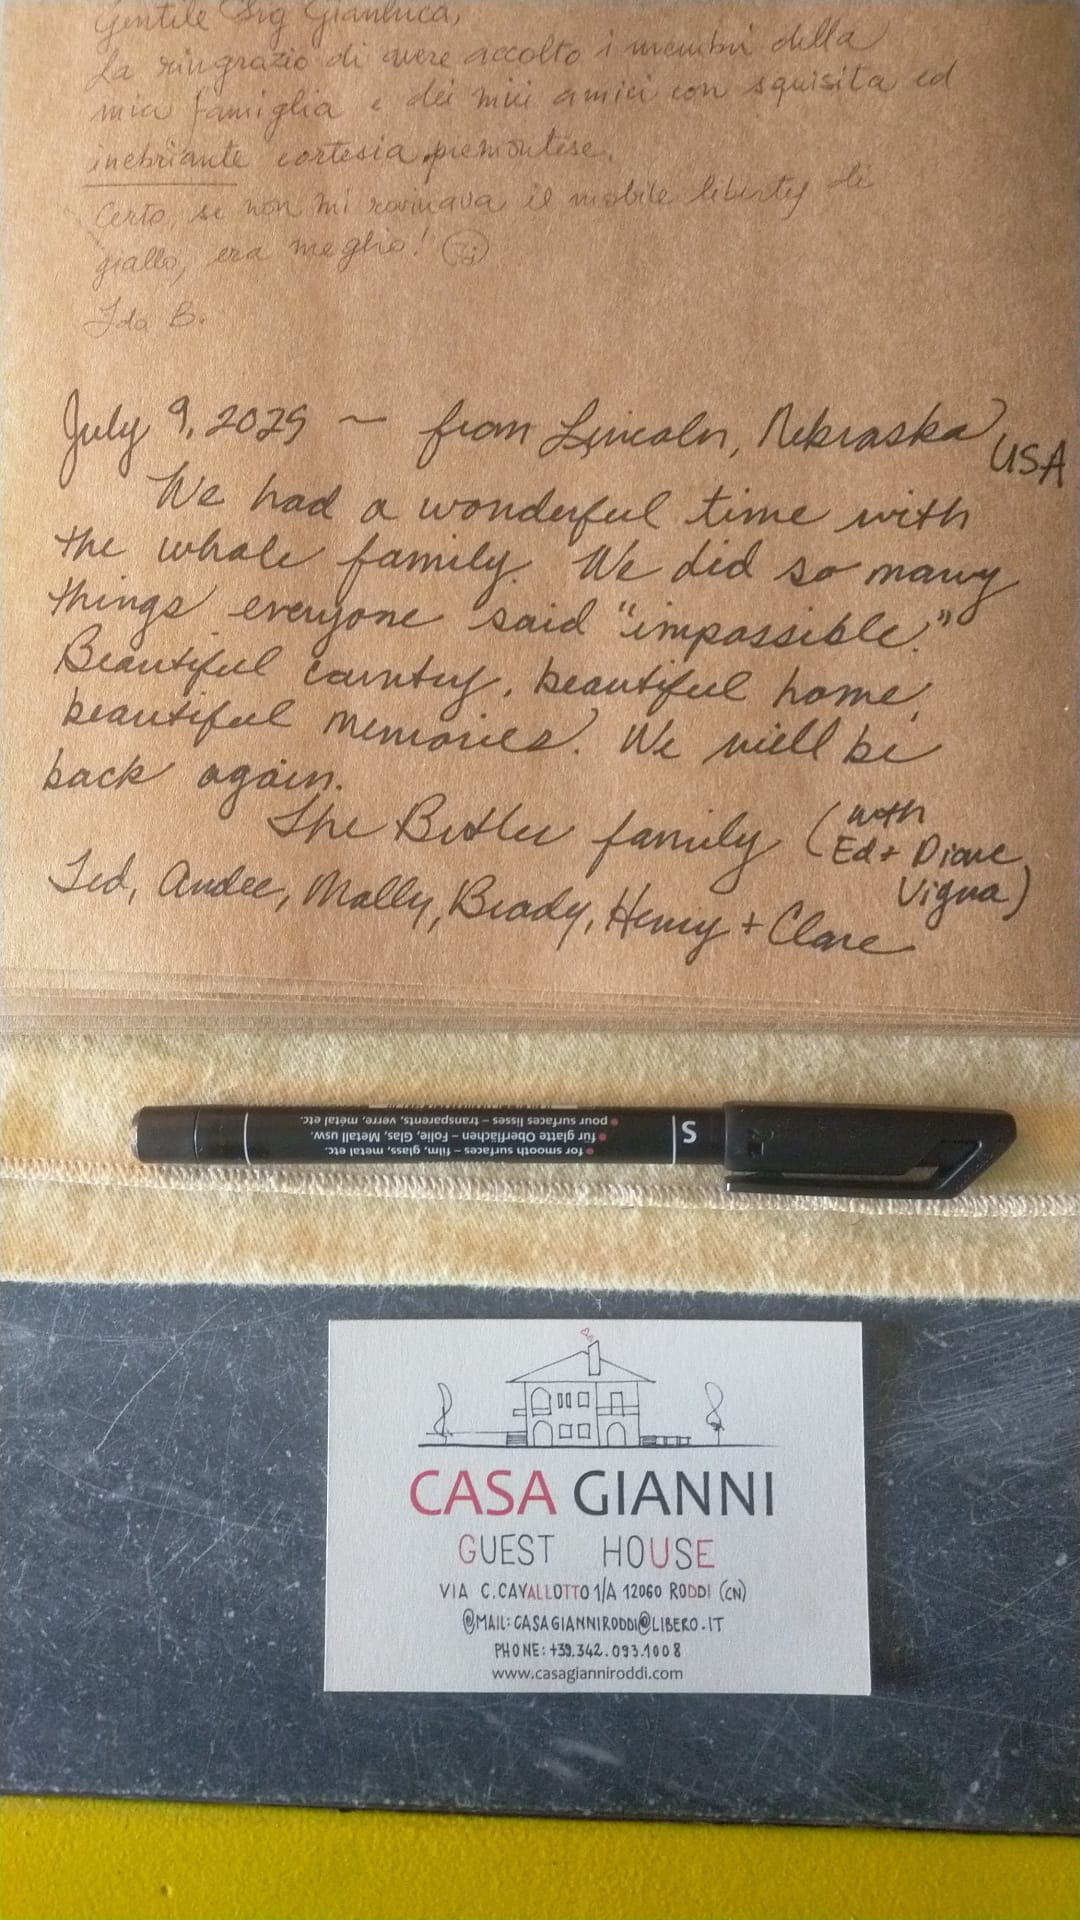 Gentile Sig Gianluca,
La ringrazio di avere accolto i membri della
mia famiglia e dei miei amici con squisita ed
inebriante cortesia piemontese.
Certo, se non mi rovinava il mobile liberty di
giallo, era meglio!
Ida B.
July 9, 2025 ~ from Lincoln, Nebraska
USA
We had a wonderful time with
the whole family. We did so many
things everyone said "impossible."
Beautiful country, beautiful home,
beautiful memories. We will be
back again.
The Butler family (with
Ed + Diane
Vigna)
Ted, Andee, Molly, Brady, Henry + Clare
S
for smooth surfaces – film, glass, metal etc.
für glatte Oberflächen – Folie, Glas, Metall usw.
pour surfaces lisses – transparents, verre, métal etc.
CASA GIANNI
GUEST HOUSE
VIA C.CAVALLOTTO 1/A 12060 RODDI (CN)
@MAIL: CASAGIANNIRODDI@LIBERO.IT
PHONE: +39.342.093.1008
www.casagianniroddi.com